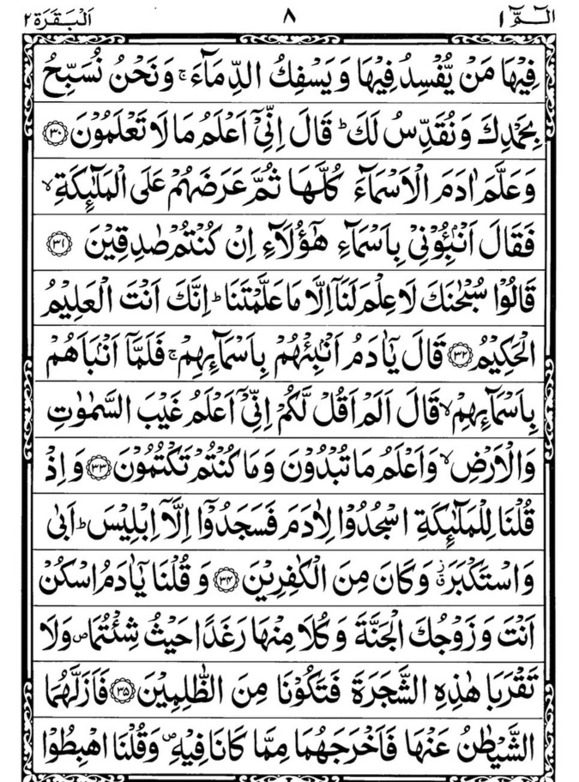 الٓمّٓ ١ ٨ اَلْبَقَرَة ٢
فِيْهَا مَنْ يُّفْسِدُ فِيْهَا وَيَسْفِكُ الدِّمَآءَ ۚ وَنَحْنُ نُسَبِّحُ
بِحَمْدِكَ وَنُقَدِّسُ لَكَ ؕ قَالَ اِنِّىْٓ اَعْلَمُ مَا لَا تَعْلَمُوْنَ ﴿۳۰﴾
وَعَلَّمَ اٰدَمَ الْاَسْمَآءَ كُلَّهَا ثُمَّ عَرَضَهُمْ عَلَى الْمَلٰٓئِكَةِ ۙ
فَقَالَ اَنْۢبِـُٔوْنِىْ بِاَسْمَآءِ هٰٓؤُلَآءِ اِنْ كُنْتُمْ صٰدِقِيْنَ ﴿۳۱﴾
قَالُوْا سُبْحٰنَكَ لَا عِلْمَ لَنَآ اِلَّا مَا عَلَّمْتَنَا ؕ اِنَّكَ اَنْتَ الْعَلِيْمُ
الْحَكِيْمُ ﴿۳۲﴾ قَالَ يٰٓاٰدَمُ اَنْۢبِئْهُمْ بِاَسْمَآئِهِمْ ۚ فَلَمَّآ اَنْۢبَاَهُمْ
بِاَسْمَآئِهِمْ ۙ قَالَ اَلَمْ اَقُلْ لَّكُمْ اِنِّىْٓ اَعْلَمُ غَيْبَ السَّمٰوٰتِ
وَالْاَرْضِ ۙ وَاَعْلَمُ مَا تُبْدُوْنَ وَمَا كُنْتُمْ تَكْتُمُوْنَ ﴿۳۳﴾ وَاِذْ
قُلْنَا لِلْمَلٰٓئِكَةِ اسْجُدُوْا لِاٰدَمَ فَسَجَدُوْٓا اِلَّآ اِبْلِيْسَ ؕ اَبٰى
وَاسْتَكْبَرَ ۗ وَكَانَ مِنَ الْكٰفِرِيْنَ ﴿۳۴﴾ وَقُلْنَا يٰٓاٰدَمُ اسْكُنْ
اَنْتَ وَزَوْجُكَ الْجَنَّةَ وَكُلَا مِنْهَا رَغَدًا حَيْثُ شِئْتُمَا ۪ وَلَا
تَقْرَبَا هٰذِهِ الشَّجَرَةَ فَتَكُوْنَا مِنَ الظّٰلِمِيْنَ ﴿۳۵﴾ فَاَزَلَّهُمَا
الشَّيْطٰنُ عَنْهَا فَاَخْرَجَهُمَا مِمَّا كَانَا فِيْهِ ۪ وَقُلْنَا اهْبِطُوْا